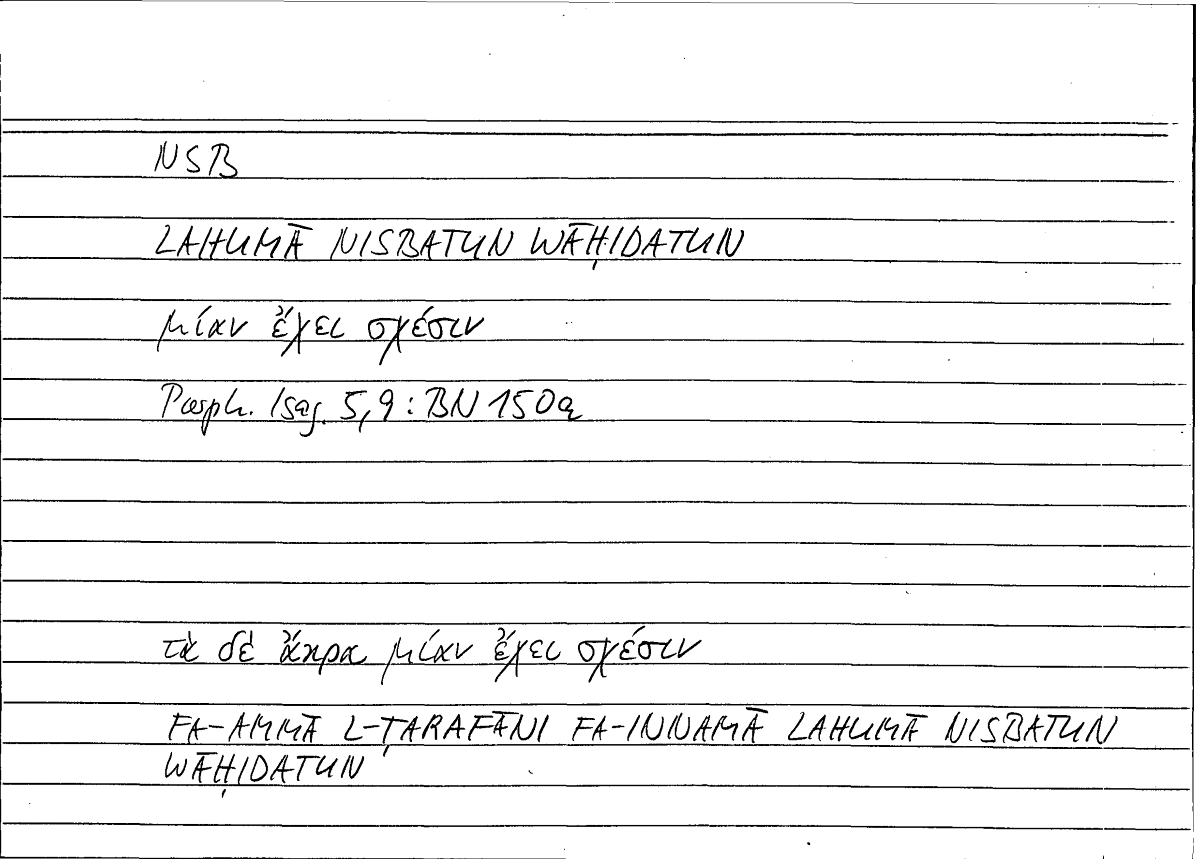 NSB
LAHUMĀ NISBATUN WĀḤIDATUN
μίαν ἔχει σχέσιν
Porph. Isag. 5,9: BN 150a
τὰ δὲ ἄκρα μίαν ἔχει σχέσιν
FA-AMMĀ L-ṬARAFĀNI FA-INNAMĀ LAHUMĀ NISBATUN
WĀḤIDATUN